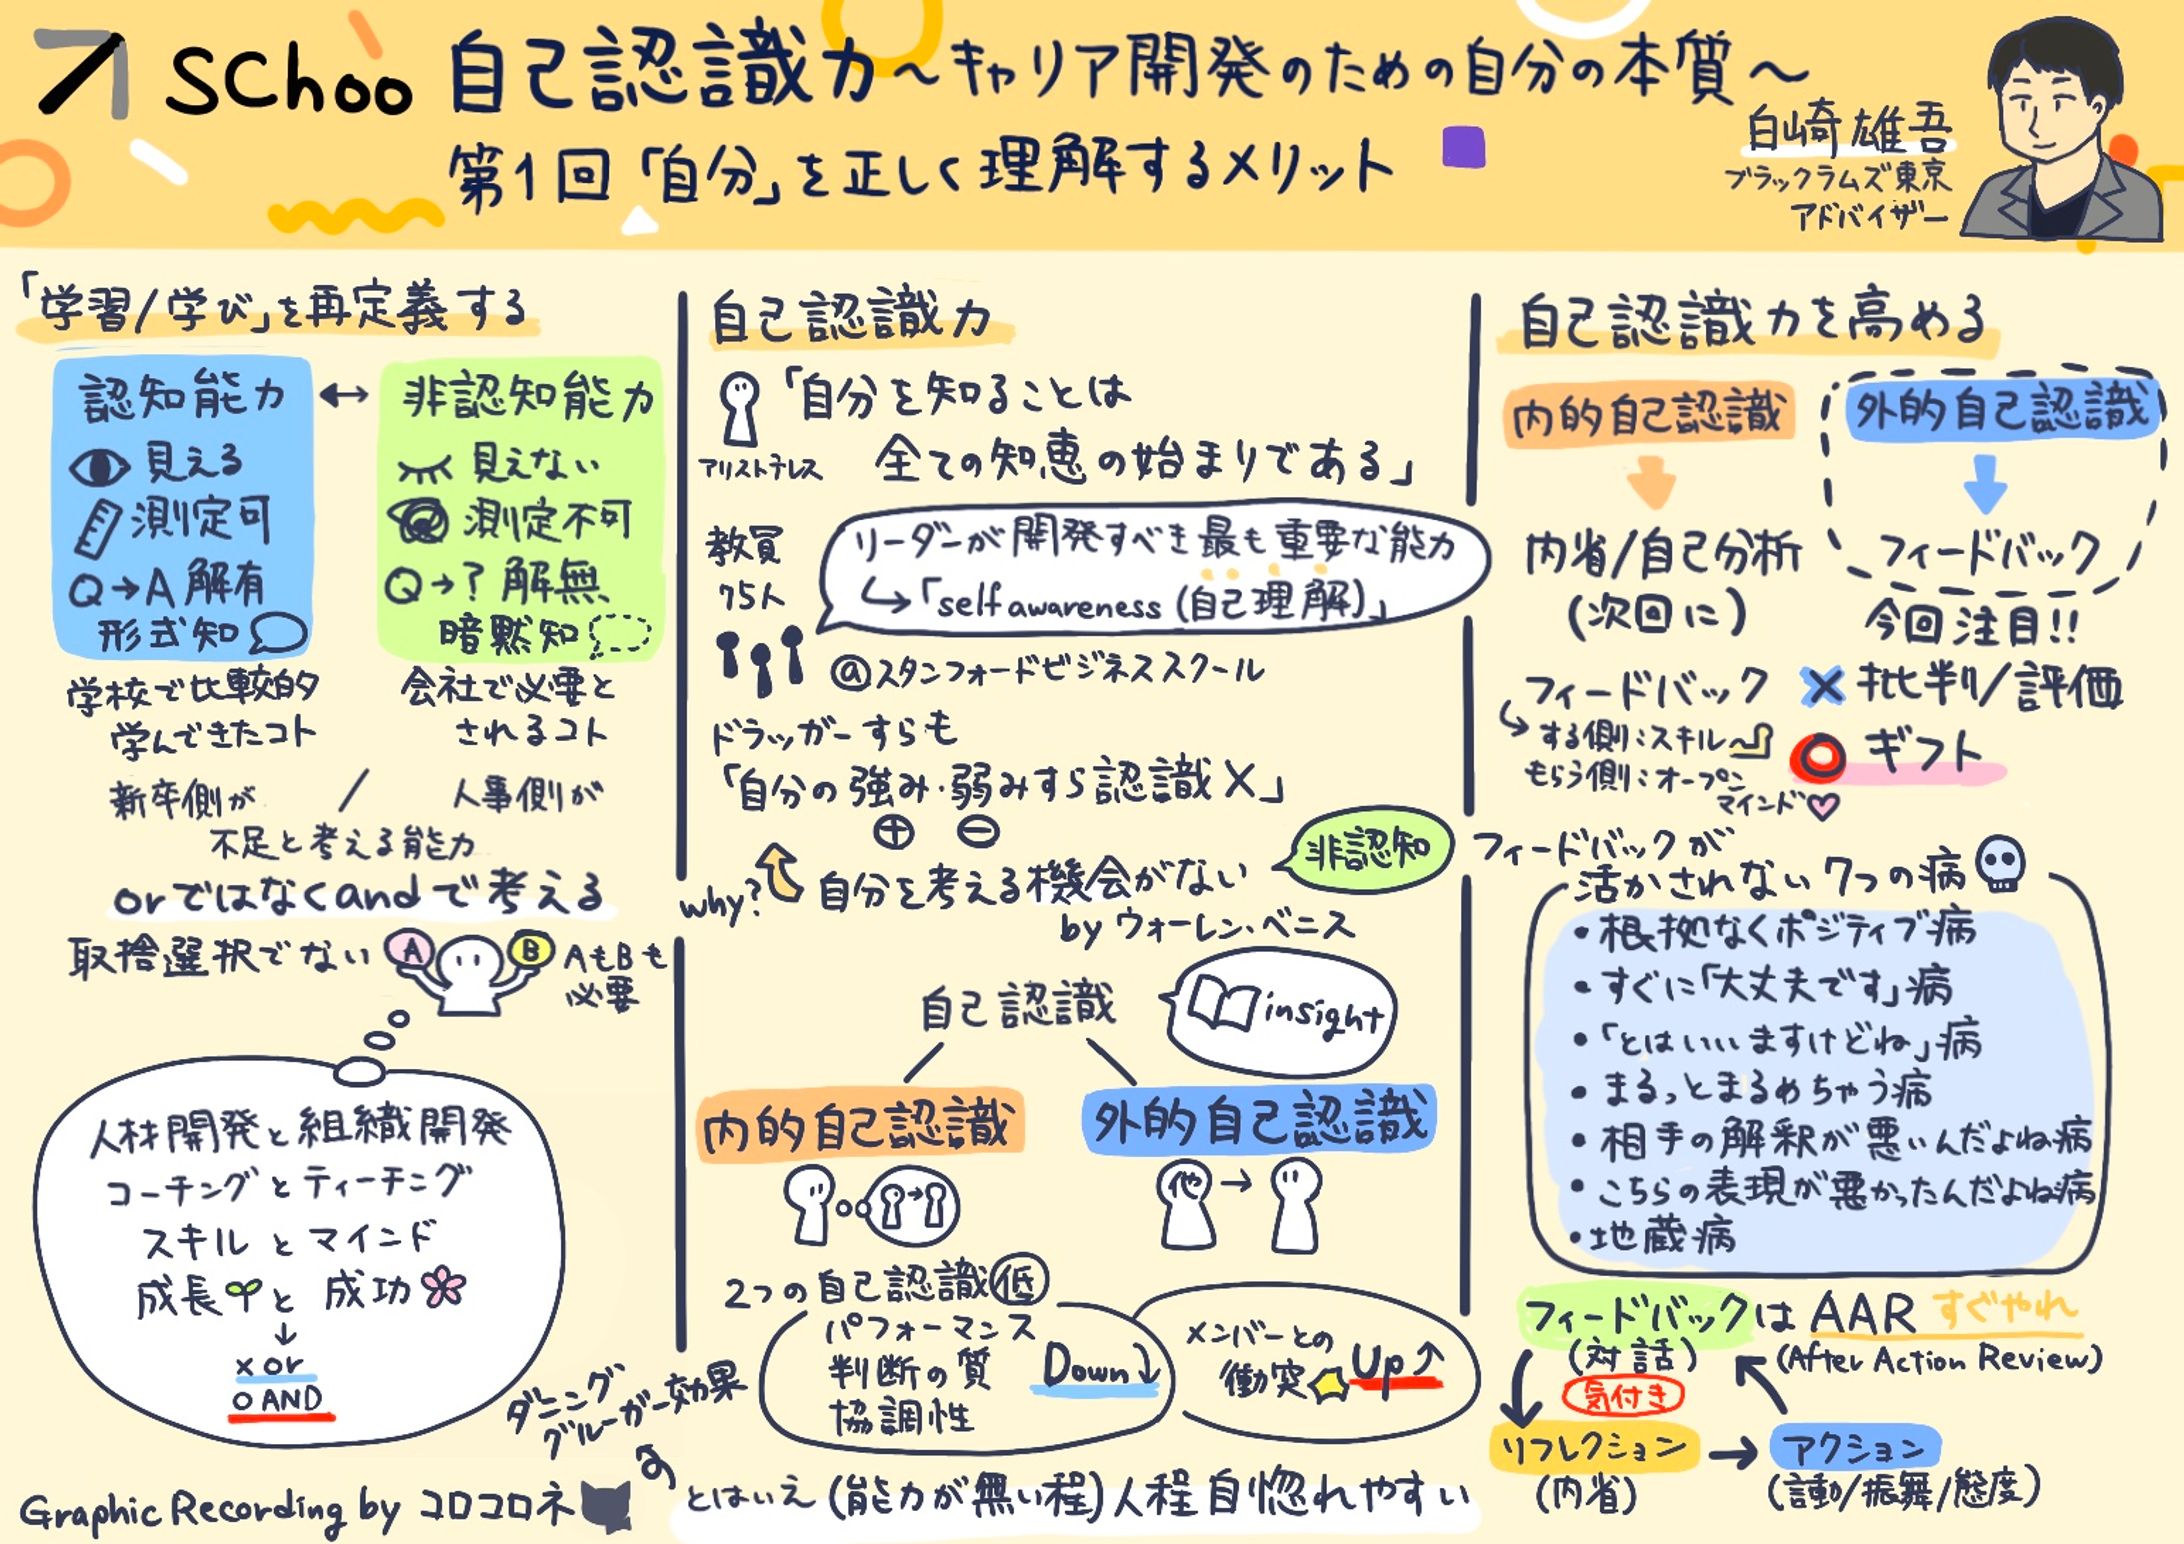 Schoo
自己認識力〜キャリア開発のための自分の本質〜
第1回「自分」を正しく理解するメリット
白崎雄吾
ブラックラムズ東京
アドバイザー
「学習/学び」を再定義する
認知能力 ↔ 非認知能力
見える
測定可
Q→A 解有
形式知
見えない
測定不可
Q→? 解無
暗黙知
学校で比較的
学んできたコト
会社で必要と
されるコト
新卒側が / 人事側が
不足と考える能力
orではなくandで考える
取捨選択でない
A
B
AもBも
必要
人材開発と組織開発
コーチングとティーチング
スキルとマインド
成長と成功
↓
x or
o AND
Graphic Recording by コロコロネ
自己認識力
アリストテレス
「自分を知ることは
全ての知恵の始まりである」
教員
75人
リーダーが開発すべき最も重要な能力
↳「self awareness (自己理解)」
@スタンフォードビジネススクール
ドラッガーすらも
「自分の強み・弱みすら認識X」
+ −
why?
自分を考える機会がない
非認知
by ウォーレン・ベニス
自己認識
insight
内的自己認識
外的自己認識
他 →
2つの自己認識低
パフォーマンス
判断の質
協調性
Down↓
メンバーとの
衝突
Up↑
ダニング
グルーガー効果
とはいえ(能力が無い程)人程自惚れやすい
自己認識力を高める
内的自己認識
内省/自己分析
(次回に)
外的自己認識
フィードバック
今回注目!!
フィードバック
する側:スキル
もらう側:オープン
マインド
× 批判/評価
○ ギフト
フィードバックが
活かされない7つの病
・根拠なくポジティブ病
・すぐに「大丈夫です」病
・「とはいいますけどね」病
・まるっとまるめちゃう病
・相手の解釈が悪いんだよね病
・こちらの表現が悪かったんだよね病
・地蔵病
フィードバックはAAR すぐやれ
(対話)
(After Action Review)
気付き
リフレクション → アクション
(内省)
(言動/振舞/態度)